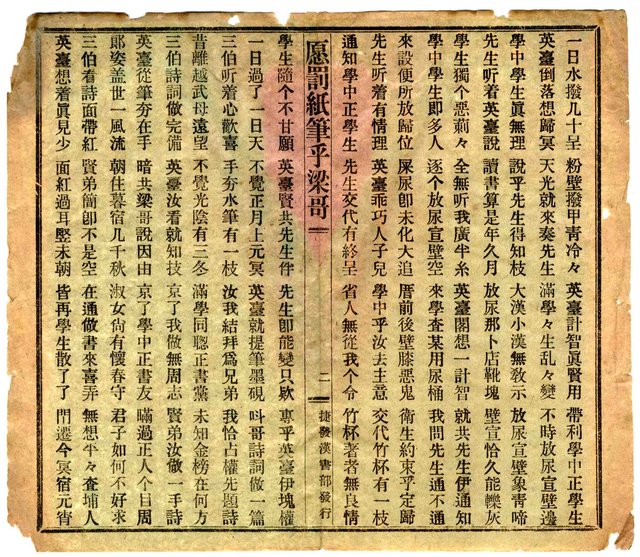 一日水撥几十呈 粉壁撥甲青冷々 英臺計智眞賢用 帶利學中正學生
英臺倒落想歸冥 天光就來奏先生 滿學々生乱々變 不時放尿宣壁邊
學中學生眞無理 說乎先生得知枝 大漢小漢無敎示 放尿宣壁象青啼
先生听着英臺說 讀書算是年久月 放尿那卜店靴塊 壁宣恰久能轢灰
學生獨個惡蓟々 全無听我廣半糸 英臺閣想一計智 就共先生伊通知
學中學生即多人 逐個放尿宣壁空 來學查某用尿桶 我問先生通不通
來設便所放歸位 屎尿卽未化大追 厝前後壁膝惡鬼 衛生約束乎定歸
先生听着有情理 英臺乖巧人子兒 學中乎汝去主意 交代竹杯有一枝
通知學中正學生 先生交代有終呈 省人無從我个令 竹杯著者無良情
愿罰紙筆乎梁哥 二 捷發漢書部發行
學生隨个不甘願 英臺賢共先生件 先生卽能變只欵 專乎英臺伊塊權
一日過了一日天 不覺正月上元冥 英臺就提筆墨硯 呌哥詩詞做一篇
三伯听着心歡喜 手夯水筆有一枝 汝我結拜爲兄弟 我恰占權先題詩
昔離越武母遠望 不覺光陰有三冬 滿學同聰正書黨 未知金榜在何方
三伯詩詞做完備 英臺汝看就知技 京了我做無周志 賢弟汝做一手詩
英臺從筆夯在手 暗共梁哥說因由 京了學中正書友 瞞過正人个日周
郞姿盖世一風流 朝住暮宿几千秋 淑女尙有懷春守 君子如何不好求
三伯看詩面帶紅 賢弟簡卽不是空 在通做書來喜弄 無想半々查埔人
英臺想着眞見少 面紅過耳堅未朝 皆再學生散了了 門遷今冥宿元宵